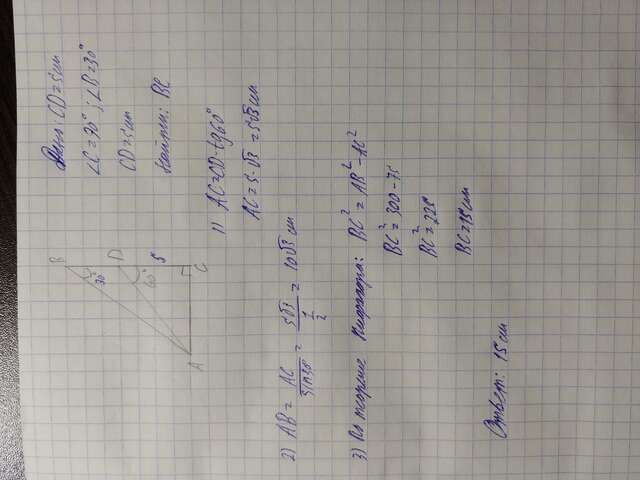 Дано: CD=5см
∠C=90°; ∠B=30°
CD=5см
Найти: BC
B
30°
D
60°
5
A
C
1) AC=CD·tg60°
AC=5·√3=5√3 см
2) AB = AC/sin30° = 5√3/(1/2) = 10√3 см
3) По теореме Пифагора: BC²=AB²-AC²
BC²=300-75
BC²=225
BC=15см
Ответ: 15 см